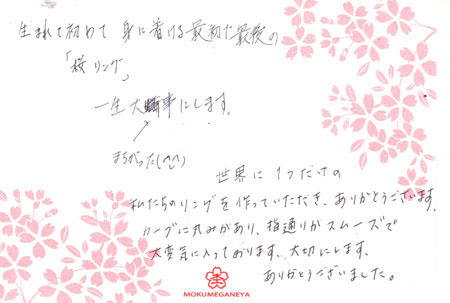 生まれて初めて 身に着ける最初で最後の
「桜リング」
一生大事にします。
まちがった(^^)
世界に1つだけの
私たちのリングを作っていただき、ありがとうございます。
カーブに丸みがあり、指通りがスムーズで
大変気に入っております。大切にします。
ありがとうございました。
MOKUMEGANEYA